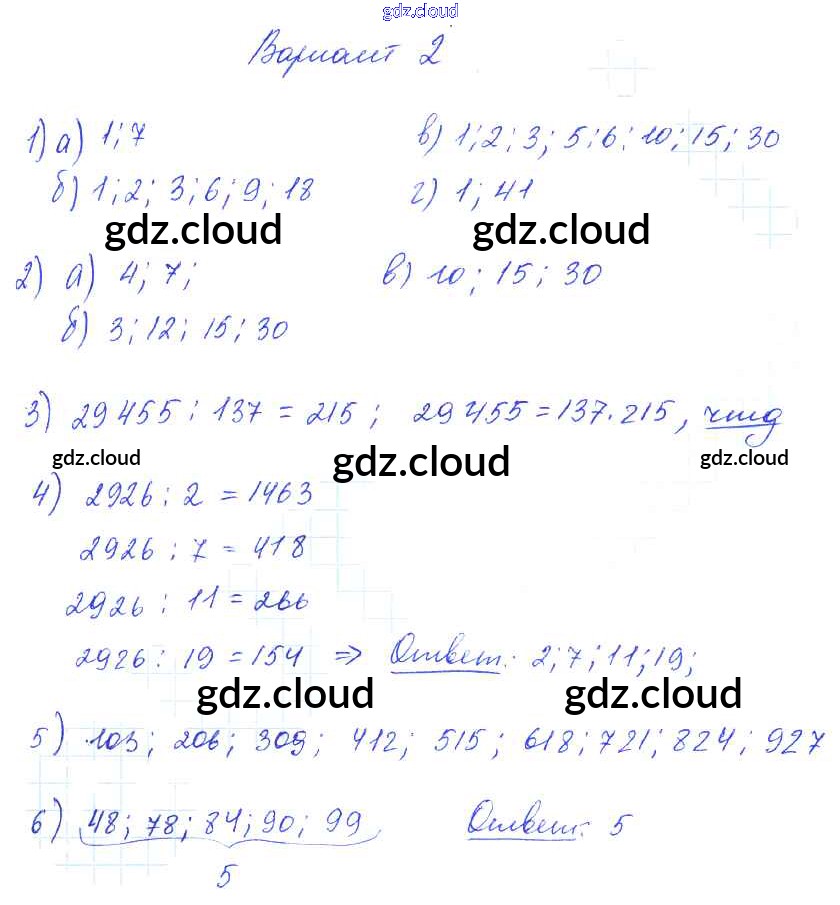 gdz.cloud
Вариант 2
1) а) 1; 7 в) 1; 2; 3; 5; 6; 10; 15; 30
б) 1; 2; 3; 6; 9; 18 г) 1; 41
gdz.cloud gdz.cloud
2) а) 4; 7; в) 10; 15; 30
б) 3; 12; 15; 30
3) 29455 : 137 = 215; 29455 = 137 · 215, чтд
gdz.cloud gdz.cloud gdz.cloud
4) 2926 : 2 = 1463
2926 : 7 = 418
2926 : 11 = 266
2926 : 19 = 154 ⇒ Ответ: 2; 7; 11; 19;
gdz.cloud gdz.cloud
5) 103; 206; 309; 412; 515; 618; 721; 824; 927
6) 48; 78; 84; 90; 99 Ответ: 5
5